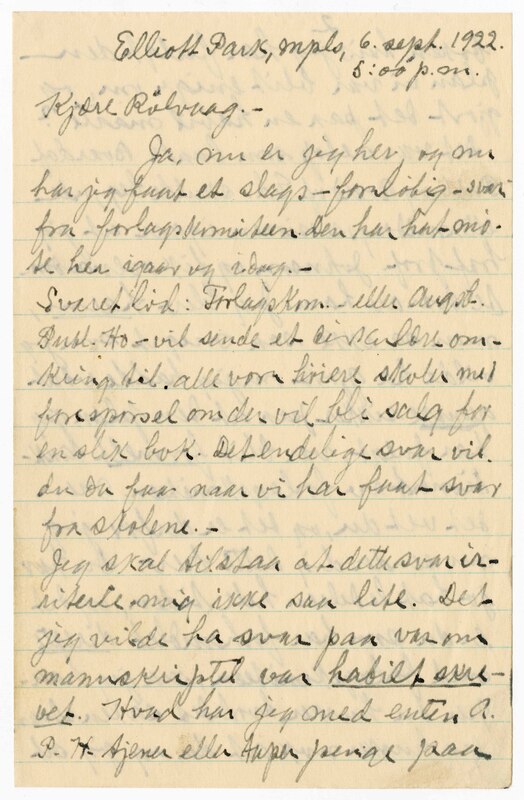 Elliott Park, mpls, 6. sept. 1922.
5:00 p.m.
Kjære Rölvaag.-
Ja, nu er jeg her, og nu
har jeg faat et slags - forelöbig - svar
fra - forlagskomiteen. Den har hat mö-
te her igaar og idag.-
Svaret löd: Forlagskom. - eller Augsb.
Publ. Ho - vil sende et cirkulære om-
kring til alle vore höiere skoler med
forespörsel om der vil bli salg for
en slik bok. Det endelige svar vil
du da faa naar vi har faat svar
fra skolene.-
Jeg skal tilstaa at dette svar ir-
riterte mig ikke saa lite. Det
jeg vilde ha svar paa var om
manuskriptet var habilt skre-
vet. Hvad har jeg med enten A.
P. H. tjener eller taper penge paa